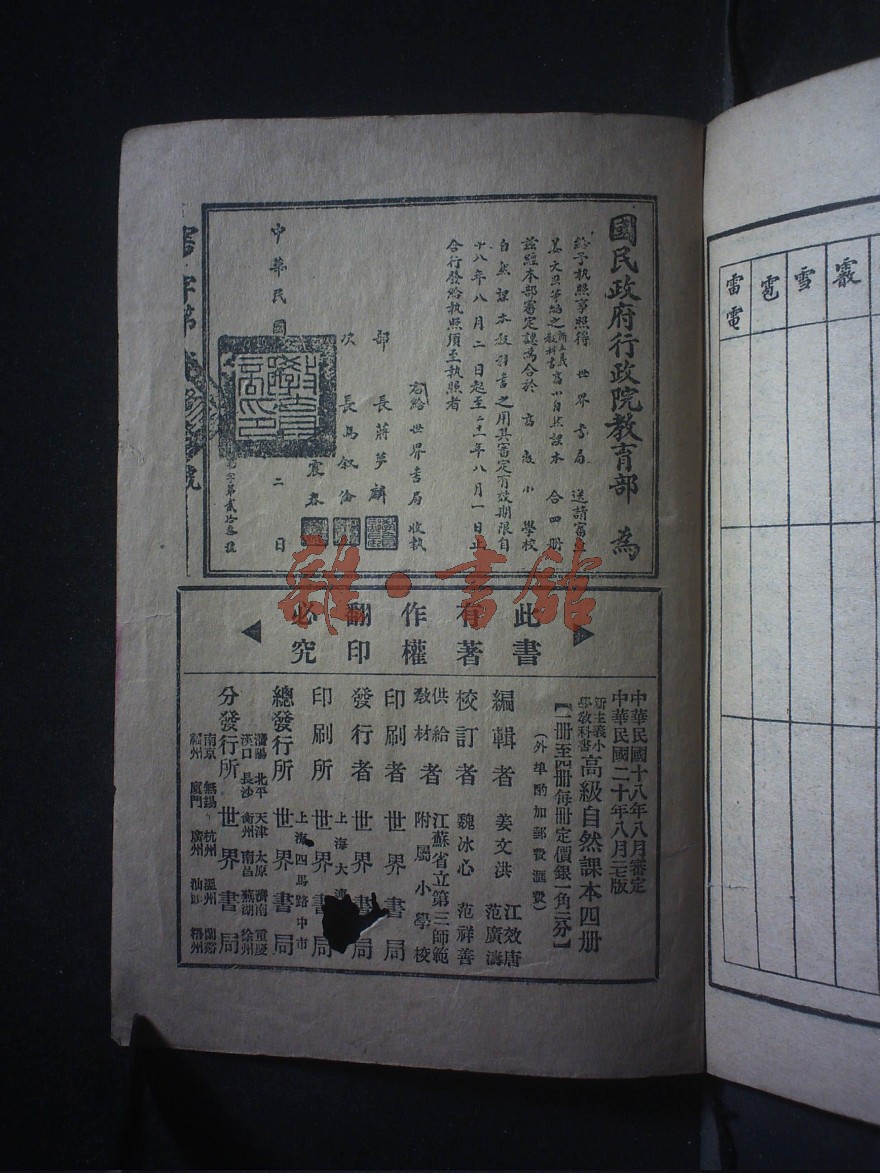 國民政府行政院教育部 為
給予執照事照得 世界書局 送請審查
姜文洪等編之新主義教科書高小自然課本 合四册
茲經本部審定認為合於 高級小 學校
自然課本教科書之用其審定有效期限自
十八年八月二日起至二十一年八月一日止
合行發給執照須至執照者
右給世界書局收執
部 長 蔣夢麟
次 長 馬叙倫
中華民國
二 日
雜·書館
此書有著作權翻印必究
中華民國十八年八月審定
中華民國二十年八月
新主義小學教科書高級自然課本四册
【一册至四册每册定價銀一角二分】
(外埠酌加郵費滙費)
編輯者 姜文洪 江效唐 范廣濤
校訂者 魏冰心 范祥善
供給教材者 江蘇省立第三師範附屬小學校
印刷者 世界書局
發行者 世界書局
印刷所 上海大 世界書局
總發行所 上海四馬路中市 世界書局
分發行所 瀋陽 北平 天津 太原 濟南 重慶 漢口 長沙 衡州 南昌 蕪湖 徐州 世界書局 南京 無錫 杭州 溫州 蘭谿 福州 廈門 廣州 汕頭 梧州
雪
雹
雷電